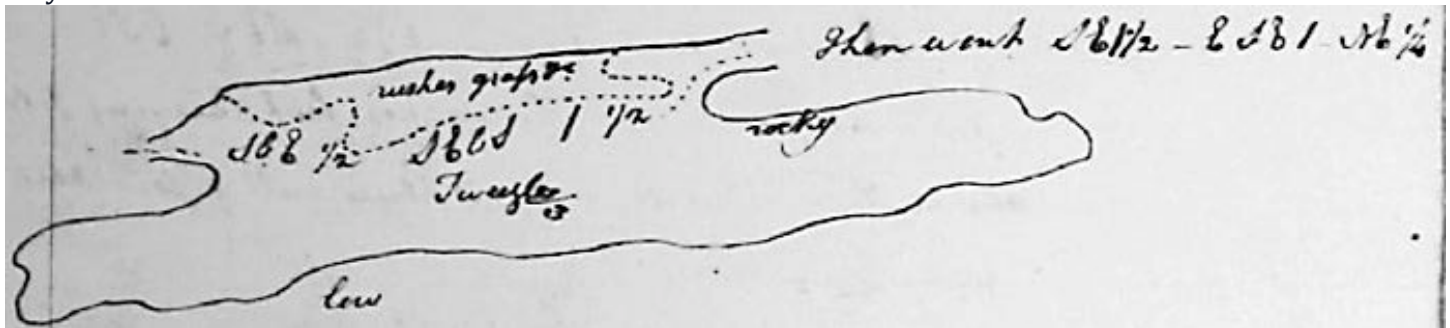 Then went SE 1/2 - E SE 1 - NE 1/4
rushes grass &c
SbE 1/2 SEbS 1 1/2 rocky
low